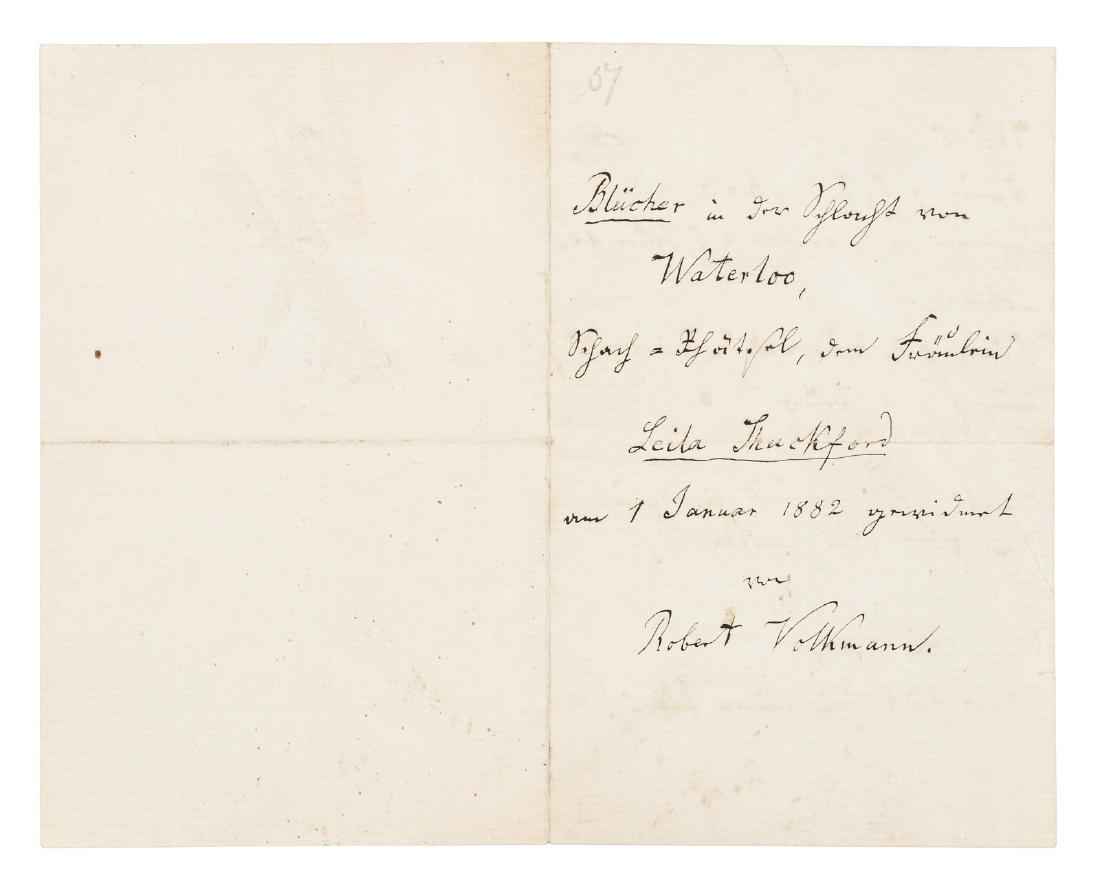 57
Blücher in der Schlacht von
Waterloo,
Schach = Rhätsel, dem Fräulein
Leila Thuckford
am 1 Januar 1882 gewidmet
von
Robert Volkmann.